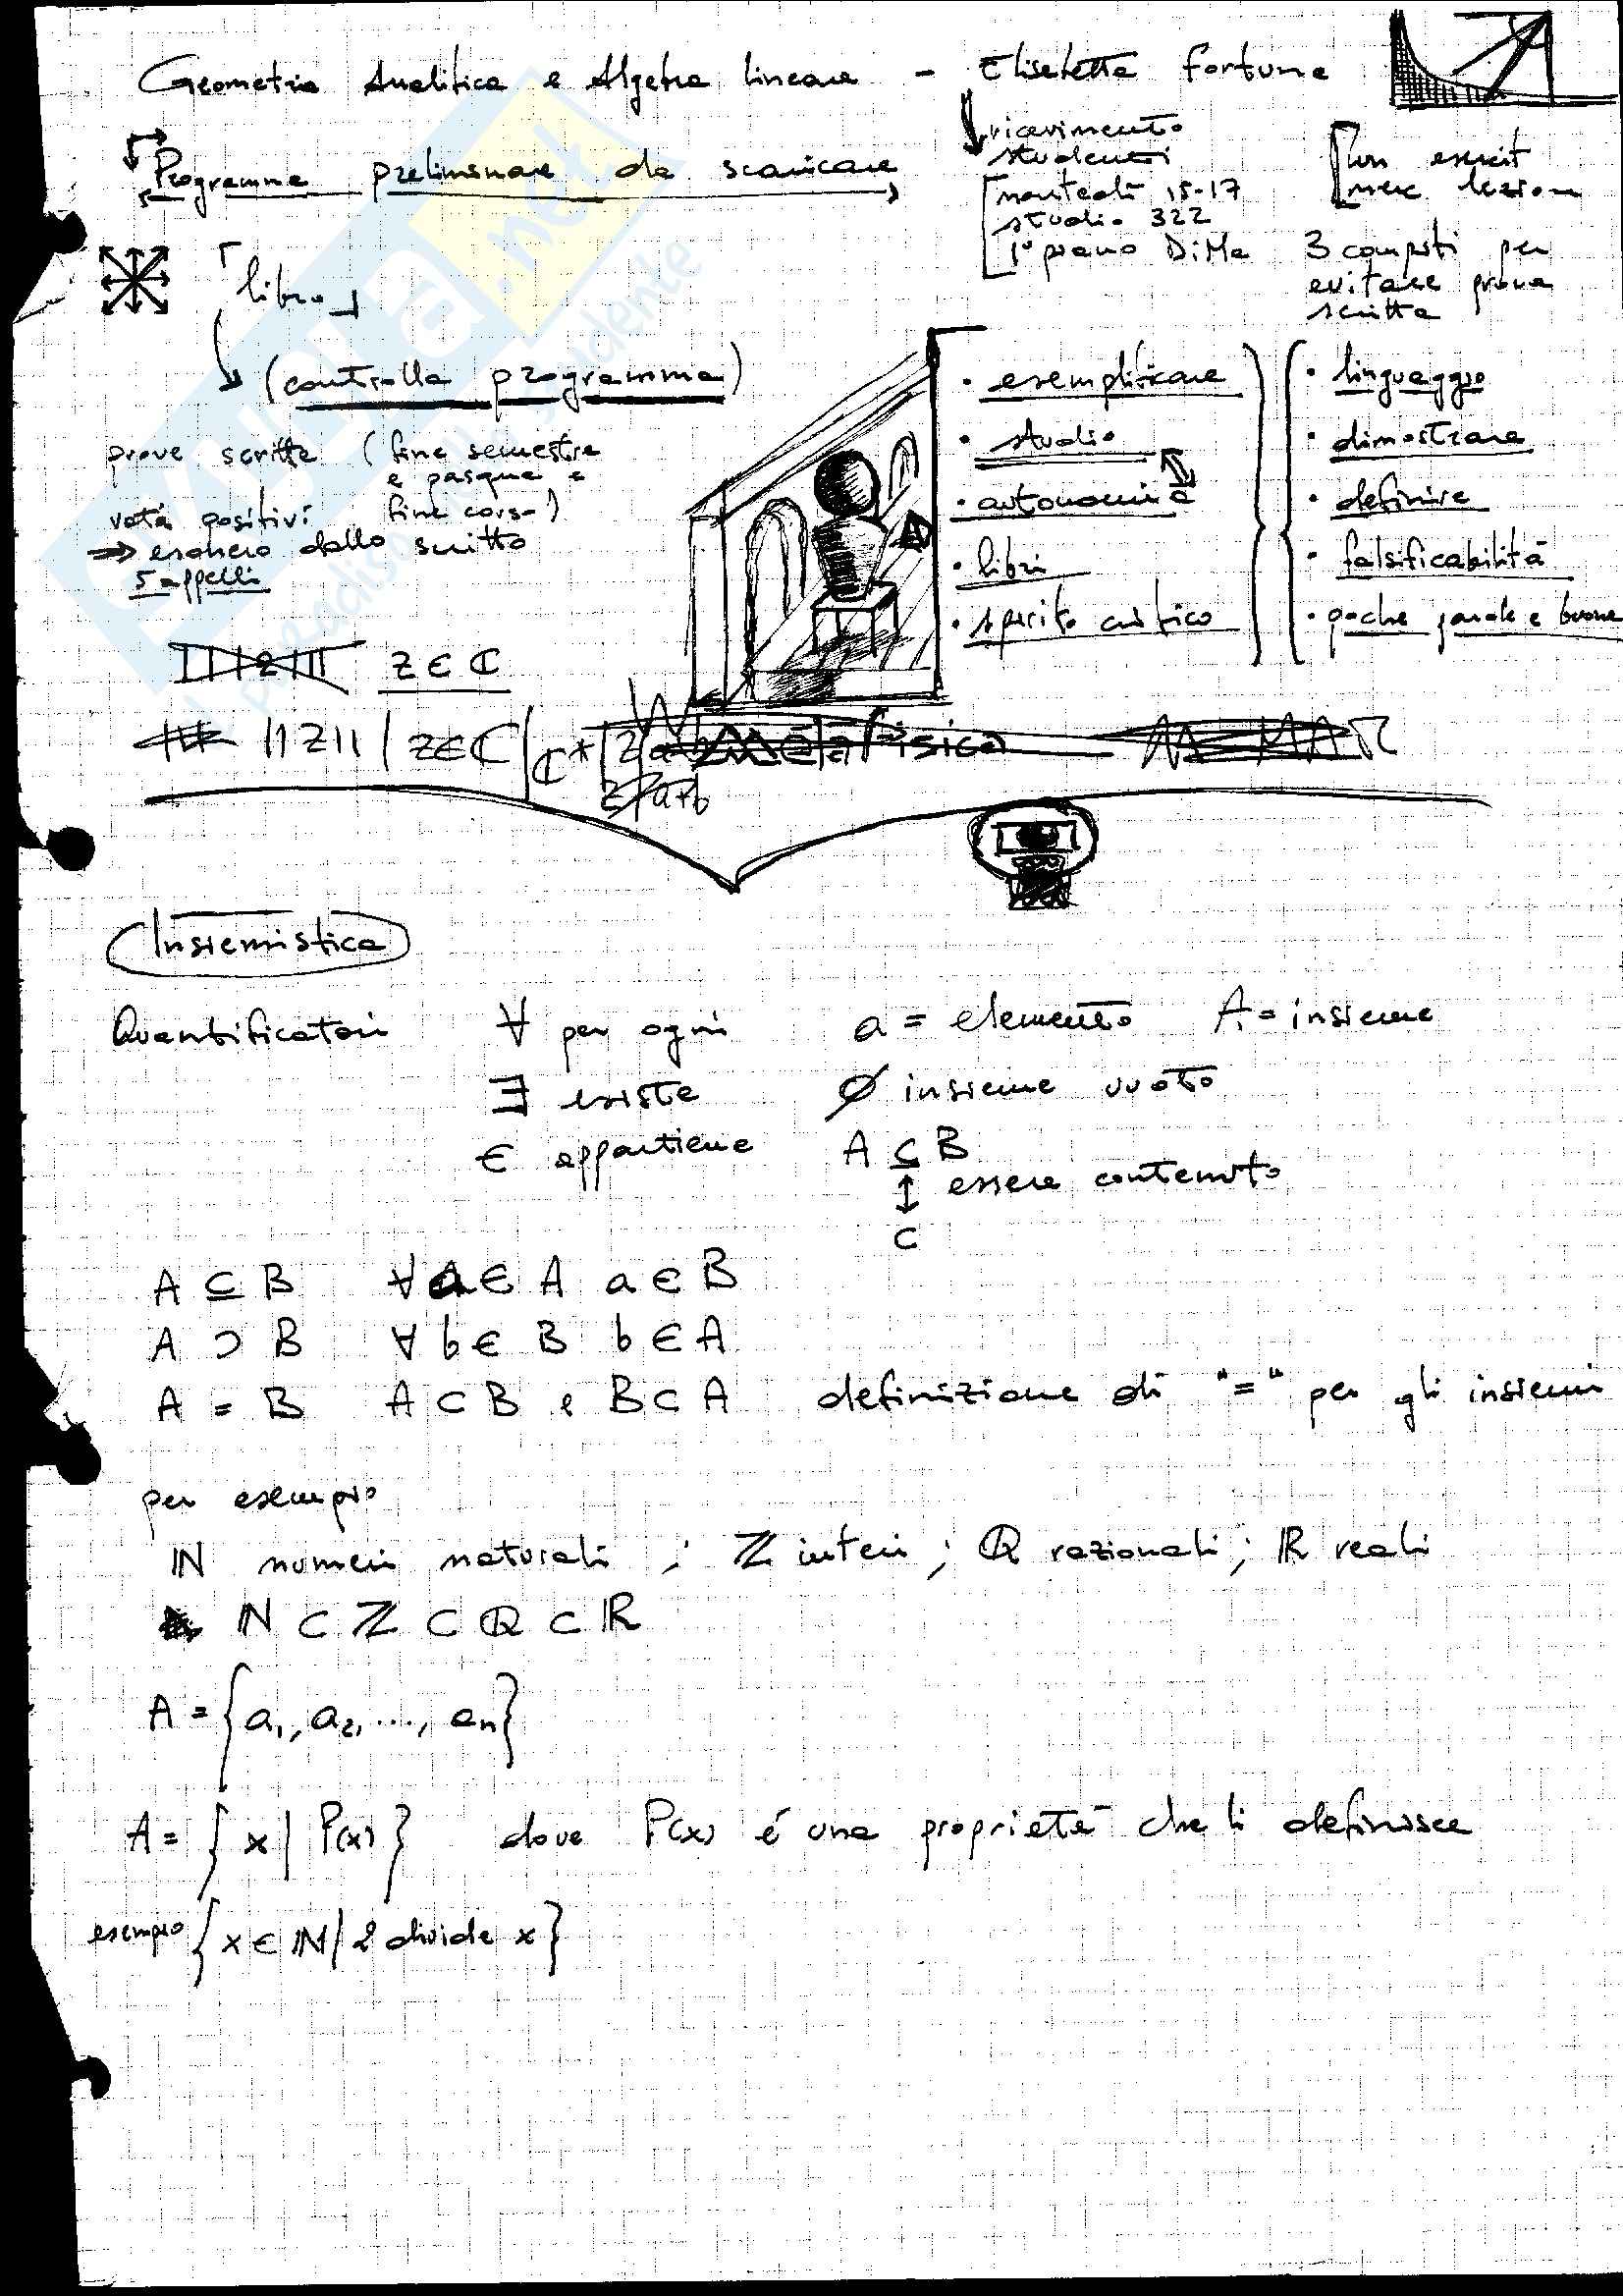 Geometria Analitica e Algebra lineare - Elisabetta Fortuna
ricevimento
studenti
martedì 15-17
studio 322
1° piano DiMa
lun esercit
merc lezion
3 compiti per
evitare prova
scritta
Programma preliminare da scaricare
libro
(controlla programma)
prove scritte (fine semestre
e pasqua e
fine corso)
voti positivi
⇒ esonero dallo scritto
5 appelli
• esemplificare
• studio
• autonomia
• libri
• spirito critico
• linguaggio
• dimostrare
• definire
• falsificabilità
• poche parole e buone
z ∈ ℂ
||z|| | z∈ℂ
metafisica
Insiemistica
Quantificatori ∀ per ogni a = elemento A = insieme
∃ esiste ∅ insieme vuoto
∈ appartiene A ⊆ B
↕ essere contenuto
⊂
A ⊆ B ∀ a ∈ A a ∈ B
A ⊃ B ∀ b ∈ B b ∈ A
A = B A ⊂ B e B ⊂ A definizione di "=" per gli insiemi
per esempio
ℕ numeri naturali ; ℤ interi ; ℚ razionali ; ℝ reali
ℕ ⊂ ℤ ⊂ ℚ ⊂ ℝ
A = {a₁, a₂, ..., aₙ}
A = { x | P(x) } dove P(x) é una proprietà che li definisce
esempio { x ∈ ℕ | 2 divide x }